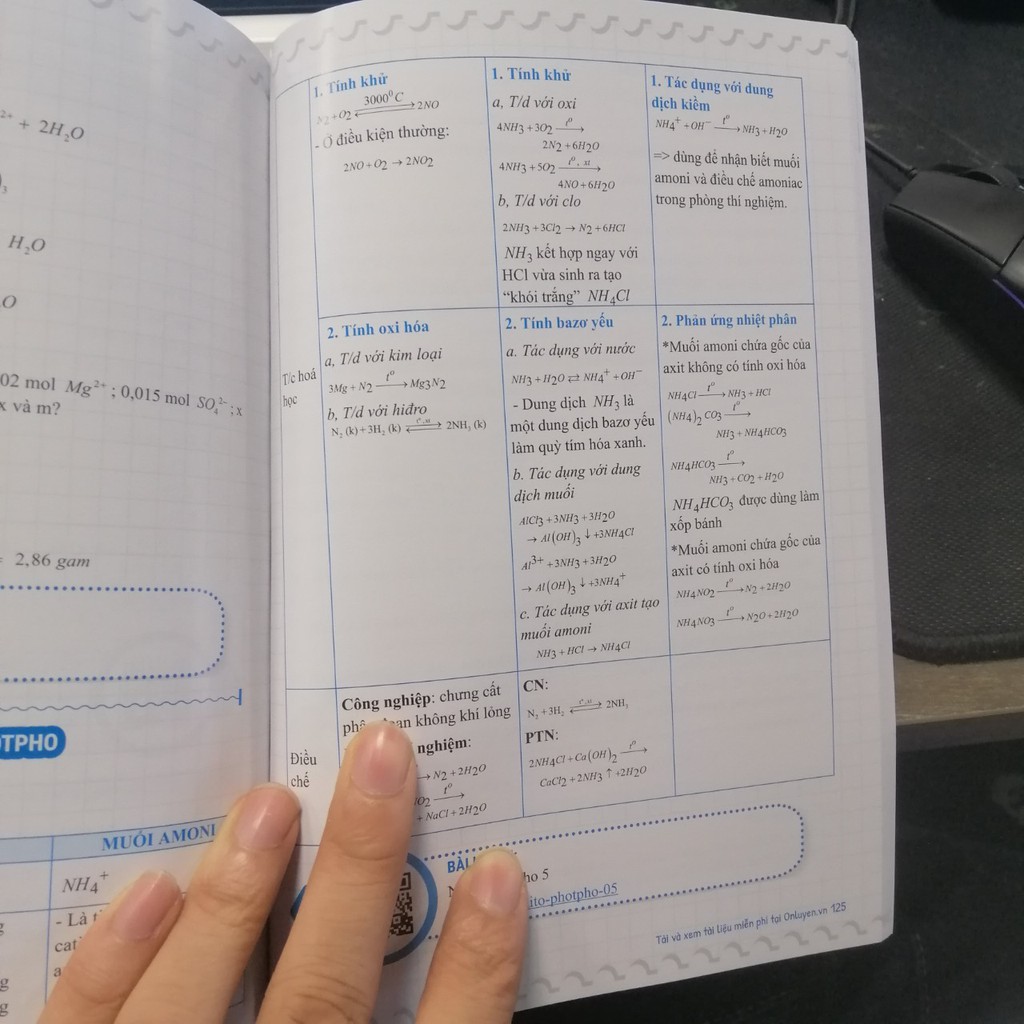 ²⁺ + 2H₂O
H₂O
02 mol Mg²⁺ ; 0,015 mol SO₄²⁻ ; x
x và m?
= 2,86 gam
OTPHO
MUỐI AMONI
NH₄⁺
- Là
1. Tính khử
N₂ + O₂ ⇌ 2NO
3000⁰C
- Ở điều kiện thường:
2NO + O₂ → 2NO₂
1. Tính khử
a, T/d với oxi
4NH₃ + 3O₂ —t⁰→
2N₂ + 6H₂O
4NH₃ + 5O₂ —t⁰, xt→
4NO + 6H₂O
b, T/d với clo
2NH₃ + 3Cl₂ → N₂ + 6HCl
NH₃ kết hợp ngay với
HCl vừa sinh ra tạo
“khói trắng” NH₄Cl
1. Tác dụng với dung
dịch kiềm
NH₄⁺ + OH⁻ —t⁰→ NH₃ + H₂O
=> dùng để nhận biết muối
amoni và điều chế amoniac
trong phòng thí nghiệm.
T/c hoá
học
2. Tính oxi hóa
a, T/d với kim loại
3Mg + N₂ —t⁰→ Mg₃N₂
b, T/d với hiđro
N₂ (k) + 3H₂ (k) ⇌ 2NH₃ (k)
t⁰, xt
2. Tính bazơ yếu
a. Tác dụng với nước
NH₃ + H₂O ⇄ NH₄⁺ + OH⁻
- Dung dịch NH₃ là
một dung dịch bazơ yếu
làm quỳ tím hóa xanh.
b. Tác dụng với dung
dịch muối
AlCl₃ + 3NH₃ + 3H₂O
→ Al(OH)₃ ↓ + 3NH₄Cl
Al³⁺ + 3NH₃ + 3H₂O
→ Al(OH)₃ ↓ + 3NH₄⁺
c. Tác dụng với axit tạo
muối amoni
NH₃ + HCl → NH₄Cl
2. Phản ứng nhiệt phân
*Muối amoni chứa gốc của
axit không có tính oxi hóa
NH₄Cl —t⁰→ NH₃ + HCl
(NH₄)₂ CO₃ —t⁰→
NH₃ + NH₄HCO₃
NH₄HCO₃ —t⁰→
NH₃ + CO₂ + H₂O
NH₄HCO₃ được dùng làm
xốp bánh
*Muối amoni chứa gốc của
axit có tính oxi hóa
NH₄NO₂ —t⁰→ N₂ + 2H₂O
NH₄NO₃ —t⁰→ N₂O + 2H₂O
Điều
chế
Công nghiệp: chưng cất
không khí lỏng
nghiệm:
→ N₂ + 2H₂O
O₂ —t⁰→
+ NaCl + 2H₂O
CN:
N₂ + 3H₂ ⇌ 2NH₃
t⁰, xt
PTN:
2NH₄Cl + Ca(OH)₂ —t⁰→
CaCl₂ + 2NH₃ ↑ + 2H₂O
ho 5
ito-photpho-05
Tải và xem tài liệu miễn phí tại Onluyen.vn 125